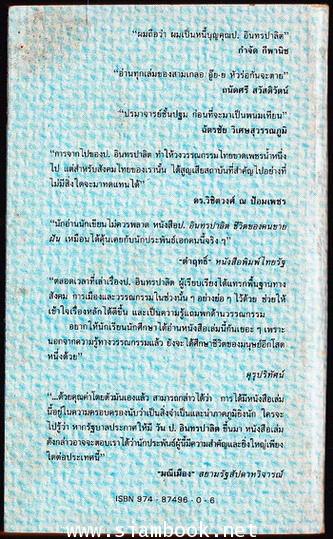 "ผมถือว่า ผมเป็นหนี้บุญคุณป. อินทรปาลิต"
กำจัด กีพานิช
"อ่านทุกเล่มของสามเกลอ อู๊ย-ย หัวร่อกันจะตาย"
ถนัดศรี สวัสดิวัตน์
"ปรมาจารย์ชั้นปฐม ก่อนที่จะมาเป็นพนมเทียน"
ฉัตรชัย วิเศษสุวรรณภูมิ
"การจากไปของป. อินทรปาลิต ทำให้วงวรรณกรรมไทยขาดเพชรน้ำหนึ่ง
ไป แต่สำหรับสังคมไทยของเรานั้น ได้สูญเสียสถาบันที่สำคัญไปอย่างที่
ไม่มีสิ่งใดจะมาทดแทนได้"
ดร.วิชิตวงศ์ ณ ป้อมเพชร
"นักอ่านนักเขียนไม่ควรพลาด หนังสือป. อินทรปาลิต ชีวิตของคนขาย
ฝัน เหมือนได้คุ้นเคยกับนักประพันธ์เอกคนนี้จริง ๆ"
"ดำฤทธิ์" หนังสือพิมพ์ไทยรัฐ
"ตลอดเวลาที่เล่าเรื่องป. อินทรปาลิต ผู้เรียบเรียงได้แทรกพื้นฐานทาง
สังคม การเมืองและวรรณกรรมในช่วงนั้น ๆ อย่างย่อ ๆ ไว้ด้วย ช่วยให้
เข้าใจเรื่องหลักได้ดีขึ้น และเป็นความรู้แถมพกด้านวรรณกรรม
อยากให้นักเรียนนักศึกษาได้อ่านหนังสือเล่มนี้กันเยอะ ๆ เพราะ
นอกจากความรู้ทางวรรณกรรมแล้ว ยังจะได้ศึกษาชีวิตของมนุษย์อีกโสต
หนึ่งด้วย"
คุรุปริทัศน์
"...ด้วยคุณค่าโดยตัวมันเองแล้ว สามารถกล่าวได้ว่า การได้มีหนังสือเล่ม
นี้อยู่ในความครอบครองนับว่าเป็นสิ่งจำเป็นและน่าภาคภูมิยิ่งนัก ใครจะ
ไปรู้ว่า หากรัฐบาลประกาศให้มี วัน ป. อินทรปาลิต ขึ้นมา หนังสือเล่ม
ดังกล่าวอาจจะตอบเราได้ว่านักประพันธ์ผู้นี้มีความสำคัญและยิ่งใหญ่เพียง
ใดต่อประเทศนี้"
"มณีเมือง" สยามรัฐสัปดาหวิจารณ์
ISBN 974 - 87496 - 0 - 6
www.siambook.net